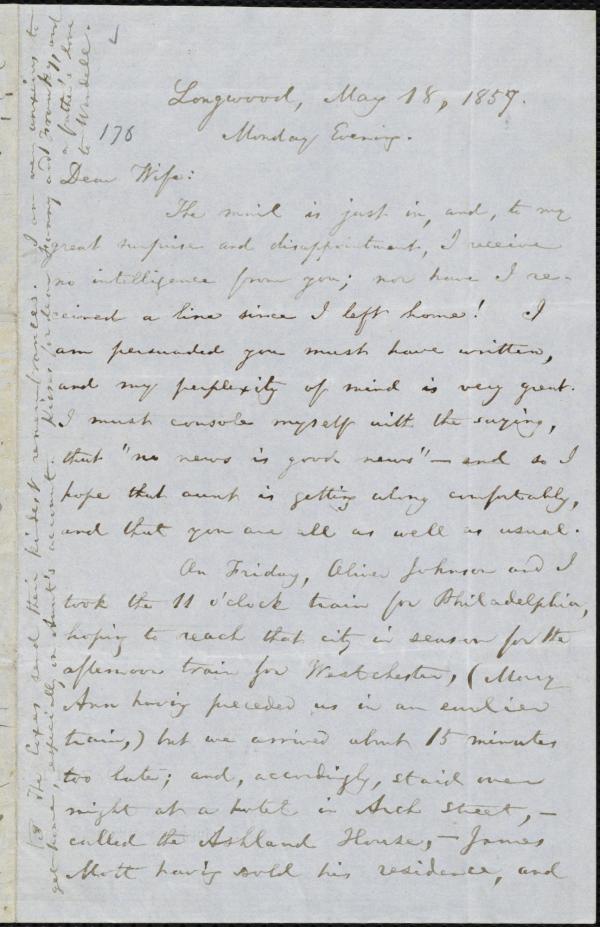 Longwood, May 18, 1857.
Monday Evening.
176
Dear Wife:
The mail is just in, and, to my
great surprise and disappointment, I receive
no intelligence from you; nor have I re-
ceived a line since I left home! I
am persuaded you must have written,
and my perplexity of mind is very great.
I must console myself with the saying,
that "no news is good news" — and so I
hope that aunt is getting along comfortably,
and that you are all as well as usual.
On Friday, Oliver Johnson and I
took the 11 o'clock train for Philadelphia,
hoping to reach that city in season for the
afternoon train for Westchester, (Mary
Ann having preceded us in an earlier
train,) but we arrived about 15 minutes
too late; and, accordingly, staid over
night at a hotel in Arch Street, —
called the Ashland House, — James
Mott having sold his residence, and
The Coxes send their kindest remembrances. I am very anxious to
get home, especially on Aunt's account. Kisses for dear Fanny and Franky, and
a father's love
to Wendell.